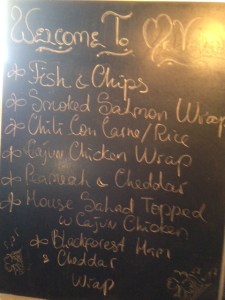 Welcome To
Fish & Chips
Smoked Salmon Wrap
Chili Con Carne/Rice
Cajun Chicken Wrap
& Cheddar
House Salad Topped
w Cajun Chicken
Blackforest Ham
& Cheddar
Wrap